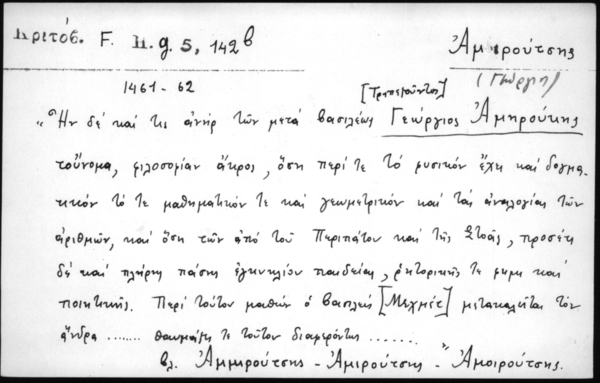 Κριτόβ. F. H. g. 5, 142β
Ἀμιρούτσης
(Γεώργιος)
1461-62
[Τραπεζοῦντος]
"Ἦν δέ καί τις ἀνήρ τῶν μετά βασιλέως Γεώργιος Ἀμηρούκης
τοὔνομα, φιλοσοφίαν ἄκρος, ὅση περί τε τό φυσικόν ἔχει καί δογμα-
τικόν τό τε μαθηματικόν τε καί γεωμετρικόν καί τάς ἀναλογίας τῶν
ἀριθμῶν, καί ὅση τῶν ἀπό τοῦ Περιπάτου καί τῆς Στοᾶς, προσέτι
δέ καί πλήρης πάσης ἐγκυκλίου παιδείας, ῥητορικῆς τε φημι καί
ποιητικῆς. Περί τούτου μαθών ὁ βασιλεύς [Μεχμέτ] μετακαλεῖται τόν
ἄνδρα ........ θαυμάζει τε τοῦτον διαφερόντως .......
βλ. Ἀμμιρούτσης - Ἀμιρούτσης - Ἀμοιρούτσης.